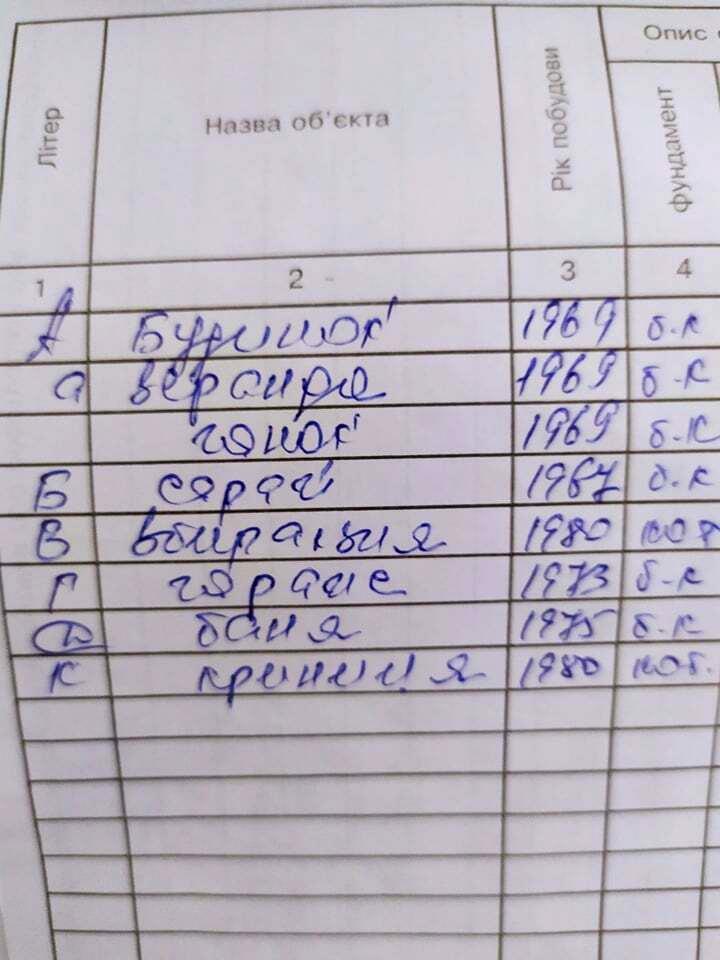 Літер Назва об'єкта Рік побудови Опис
фундамент
1 2 3 4
А Будинок 1969 б.к
а веранда 1969 б.к
ганок 1969 б.к
Б сарай 1967 б.к
В вбиральня 1980 кот
Г гараж 1973 б-к
баня 1975 б.к
К криниця 1980 кот.